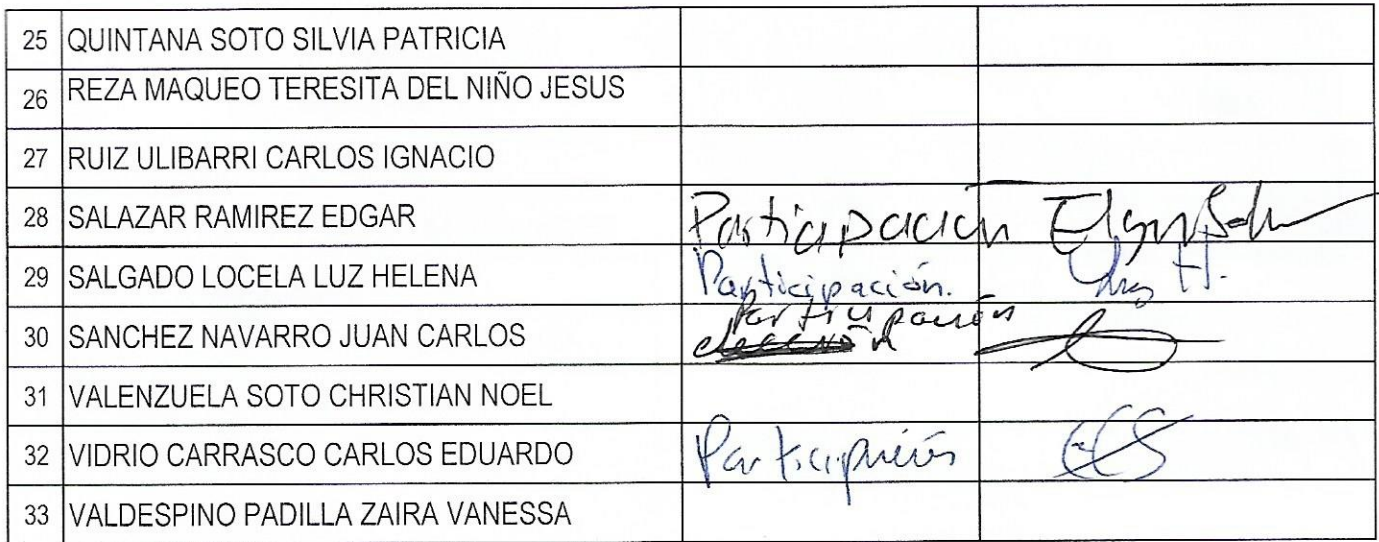 25 QUINTANA SOTO SILVIA PATRICIA
26 REZA MAQUEO TERESITA DEL NIÑO JESUS
27 RUIZ ULIBARRI CARLOS IGNACIO
28 SALAZAR RAMIREZ EDGAR Participación
29 SALGADO LOCELA LUZ HELENA Participación. Luz H.
30 SANCHEZ NAVARRO JUAN CARLOS Participación
31 VALENZUELA SOTO CHRISTIAN NOEL
32 VIDRIO CARRASCO CARLOS EDUARDO Participación
33 VALDESPINO PADILLA ZAIRA VANESSA